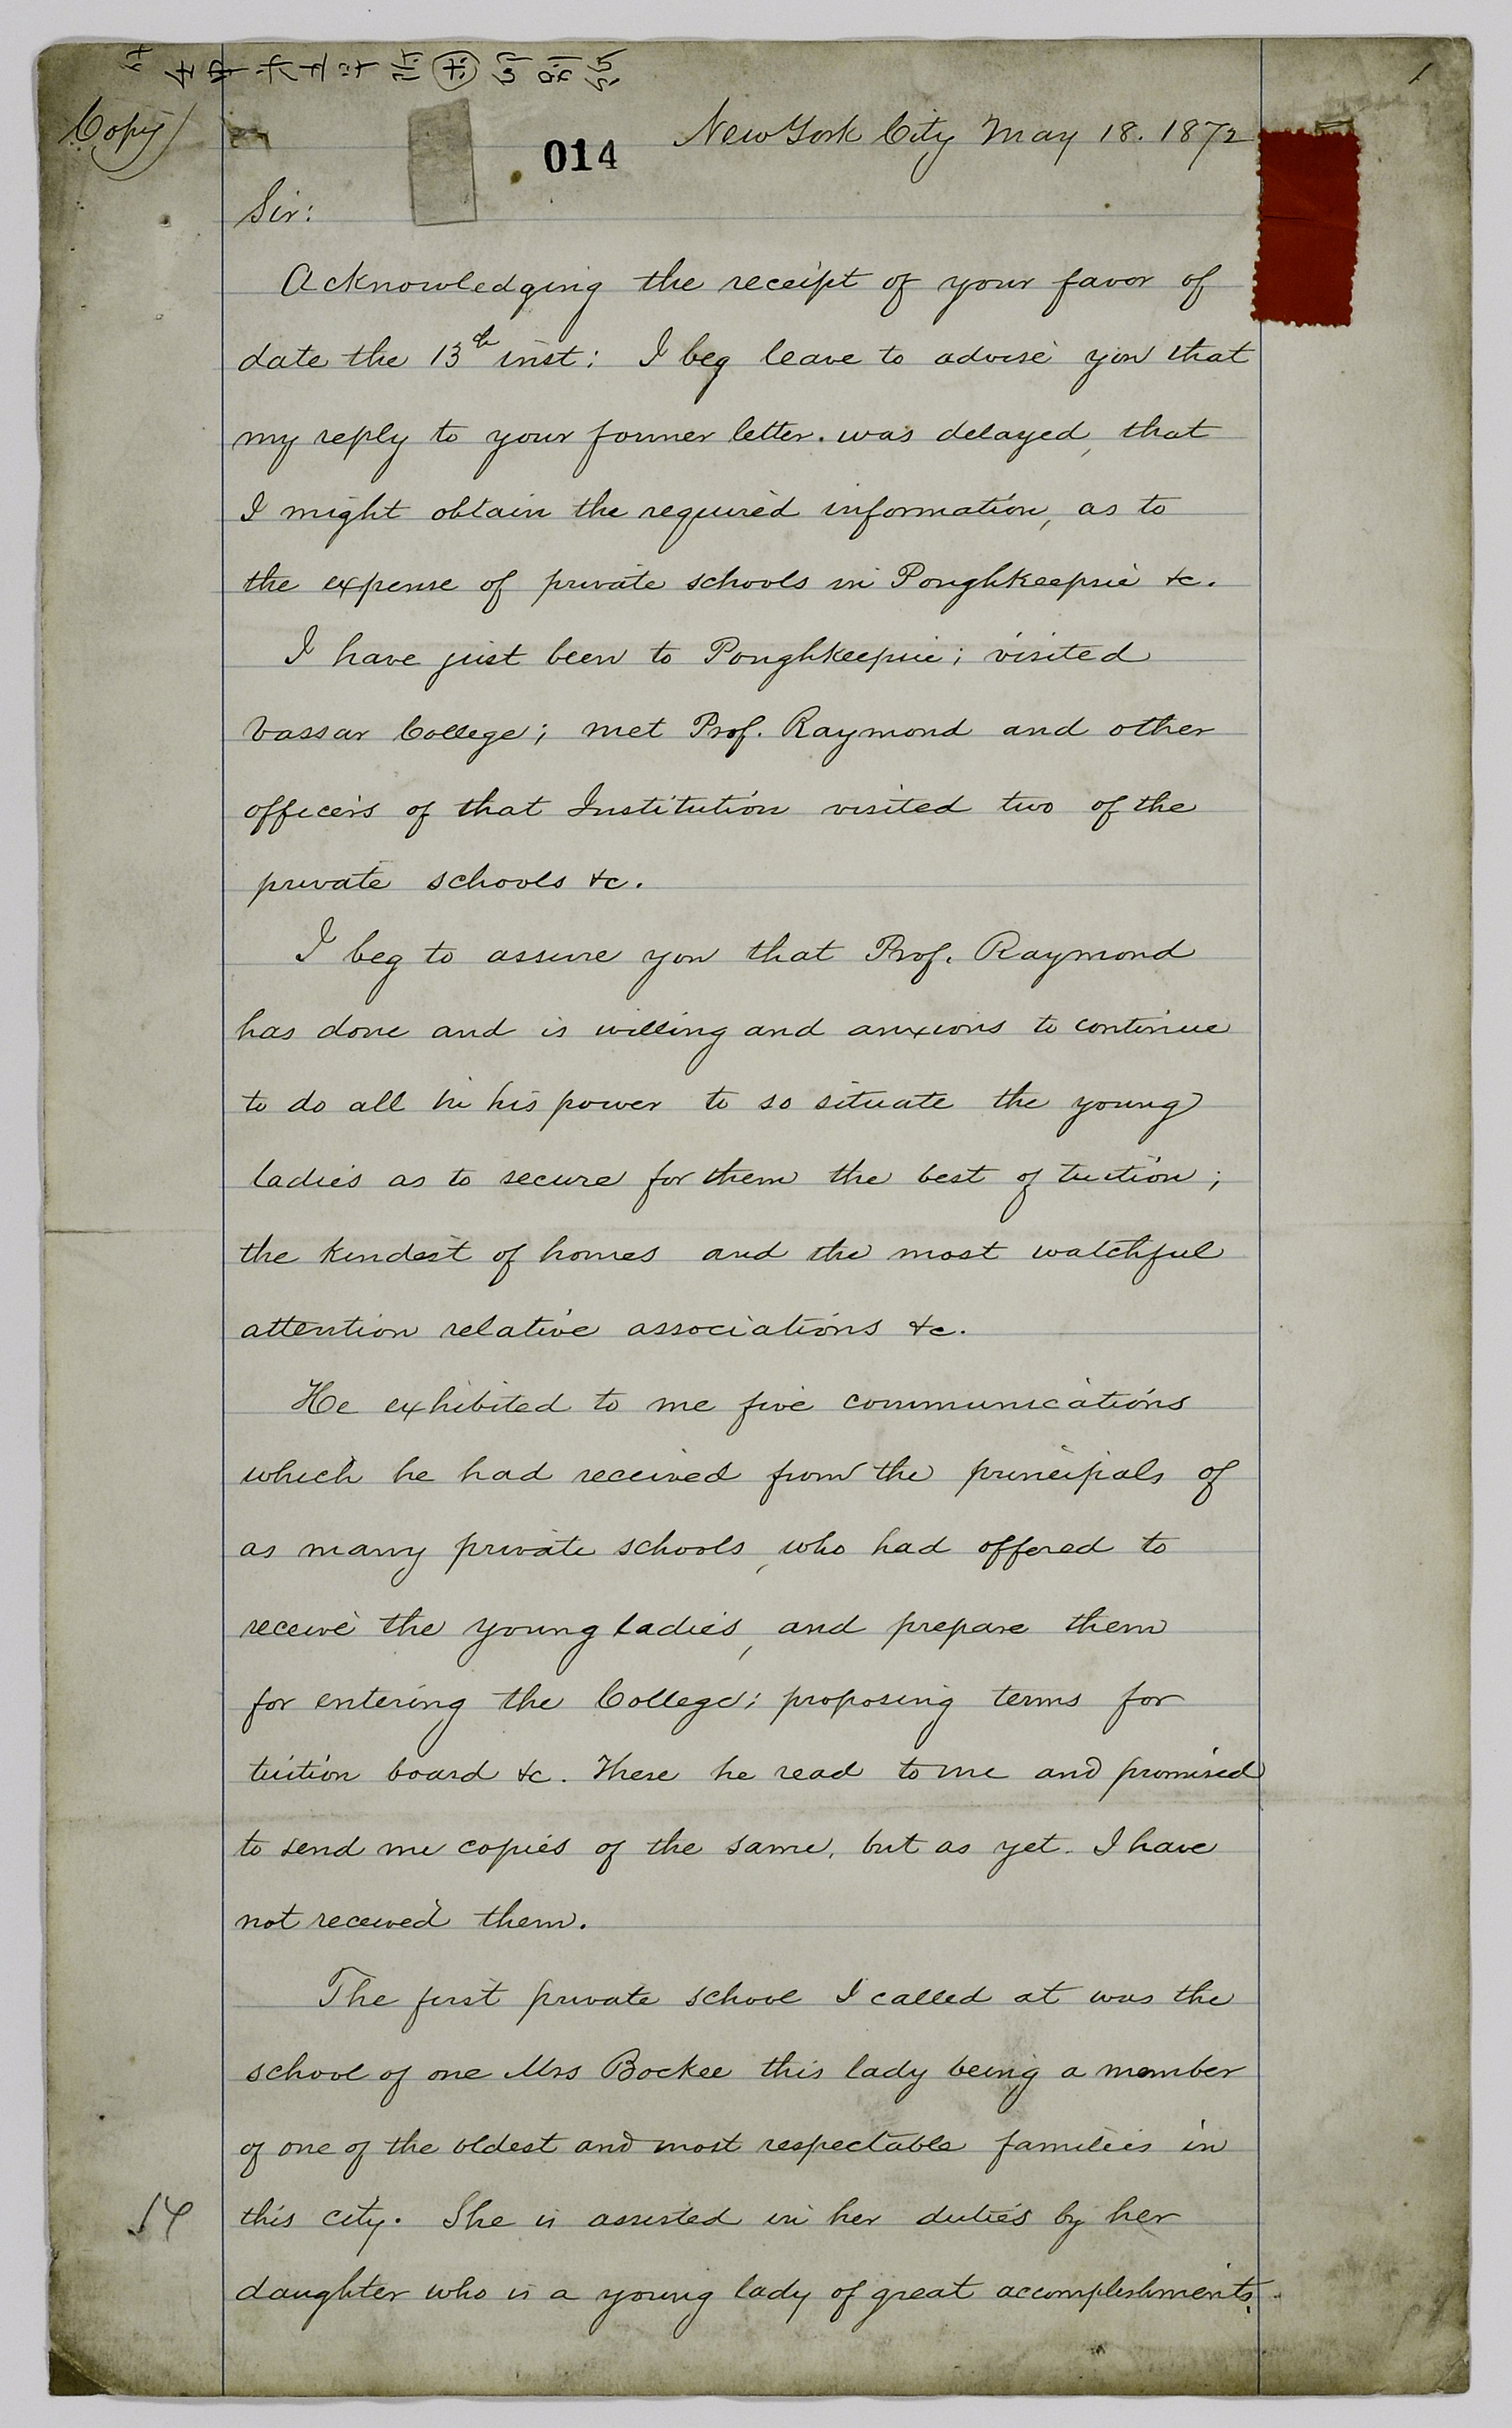 Copy
1
014
New York City May 18. 1872
Sir:
Acknowledging the receipt of your favor of
date the 13th inst: I beg leave to advise you that
my reply to your former letter. was delayed, that
I might obtain the required information, as to
the expense of private schools in Poughkeepsie &c.
I have just been to Poughkeepsie; visited
Vassar College; met Prof. Raymond and other
officers of that Institution visited two of the
private schools &c.
I beg to assure you that Prof. Raymond
has done and is willing and anxious to continue
to do all in his power to so situate the young
ladies as to secure for them the best of tuition;
the kindest of homes and the most watchful
attention relative associations &c.
He exhibited to me five communications
which he had received from the principals of
as many private schools, who had offered to
receive the young ladies, and prepare them
for entering the College; proposing terms for
tuition board &c. These he read to me and promised
to send me copies of the same, but as yet. I have
not received them.
The first private school I called at was the
school of one Mrs Bockee this lady being a member
of one of the oldest and most respectable families in
this city. She is assisted in her duties by her
daughter who is a young lady of great accomplishments.